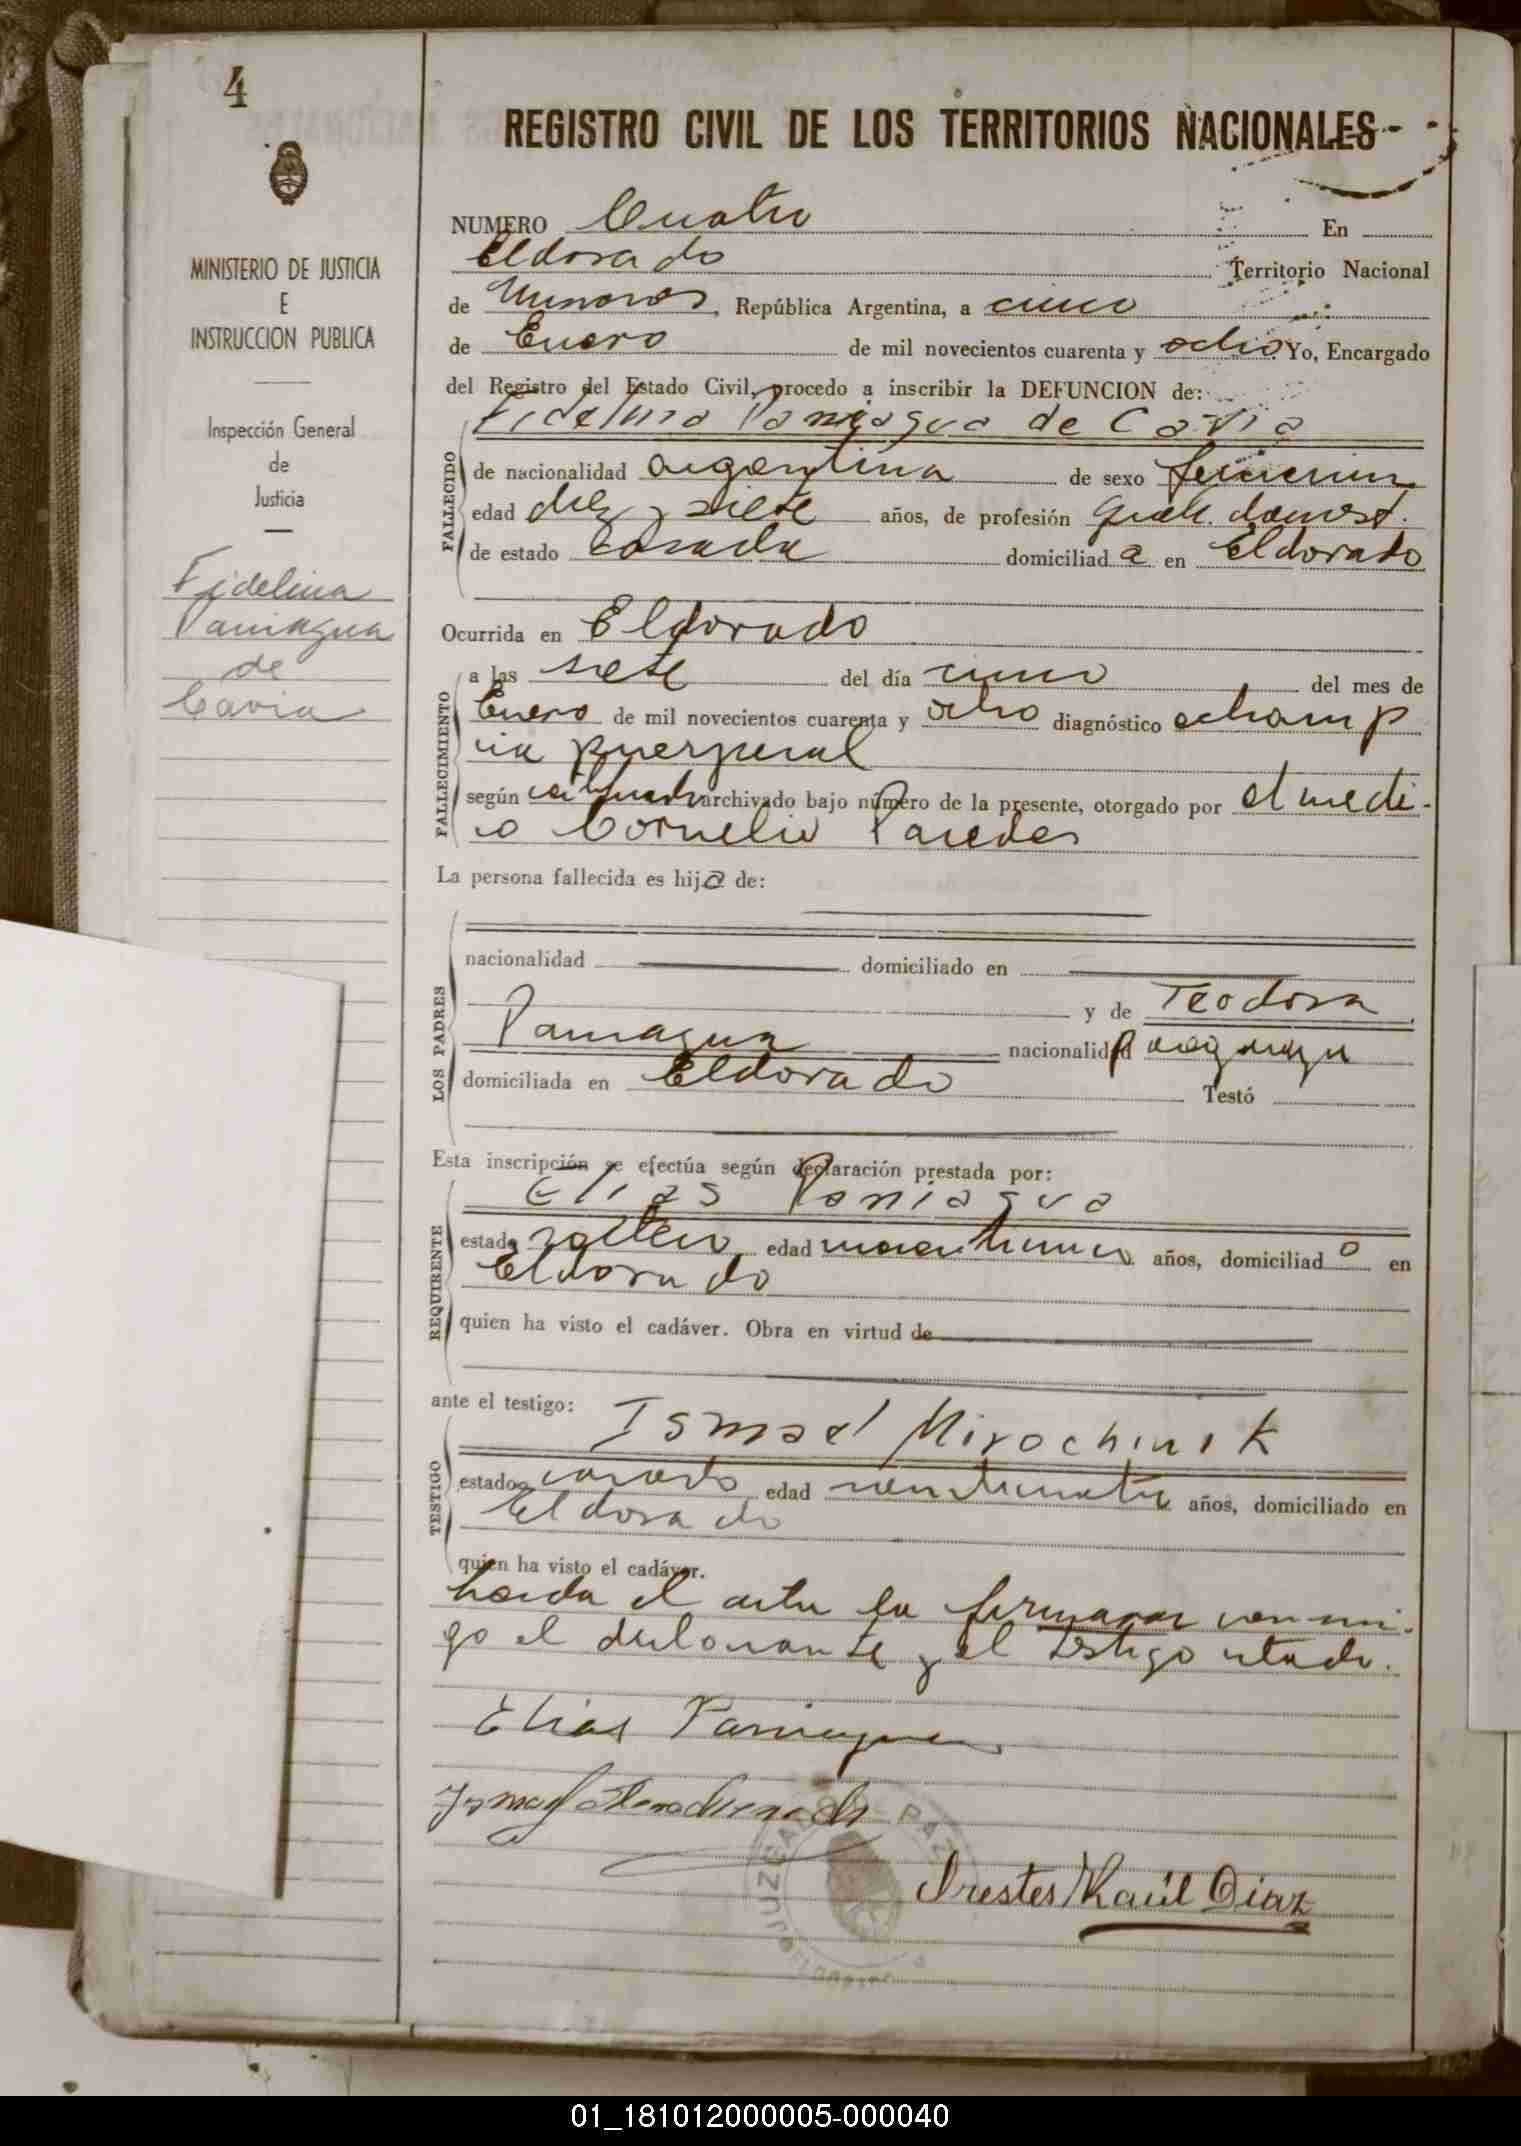 4
MINISTERIO DE JUSTICIA
E
INSTRUCCION PUBLICA
Inspección General
de
Justicia
Fidelina
Paniagua
de
Cavia
REGISTRO CIVIL DE LOS TERRITORIOS NACIONALES
NUMERO Cuatro En
Eldorado Territorio Nacional
de Misiones, República Argentina, a cinco
de Enero de mil novecientos cuarenta y ocho Yo, Encargado
del Registro del Estado Civil, procedo a inscribir la DEFUNCION de:
Fidelina Paniagua de Cavia
FALLECIDO
de nacionalidad argentina de sexo femenino
edad diez y siete años, de profesión queh. domest.
de estado casada domiciliada en Eldorado
Ocurrida en Eldorado
FALLECIMIENTO
a las siete del día cinco del mes de
Enero de mil novecientos cuarenta y ocho diagnóstico eclamp
sia puerperal
según certificado archivado bajo número de la presente, otorgado por el medi-
co Cornelio Paredes
La persona fallecida es hija de:
LOS PADRES
nacionalidad domiciliado en
y de Teodora
Paniagua nacionalidad Paraguaya
domiciliada en Eldorado Testó
Esta inscripción se efectúa según declaración prestada por:
Elias Paniagua
REQUIRENTE
estado soltero edad años, domiciliado en
Eldorado
quien ha visto el cadáver. Obra en virtud de
ante el testigo:
Ismael Mirochinik
TESTIGO
estado casado edad veinticuatro años, domiciliado en
Eldorado
quien ha visto el cadáver.
Leida el acta la firmaron conmi-
go el declarante y el testigo citado.
Elias Paniagua
Orestes Raúl Diaz
JUZGADO DE PAZ
ELDORADO
01_181012000005-000040